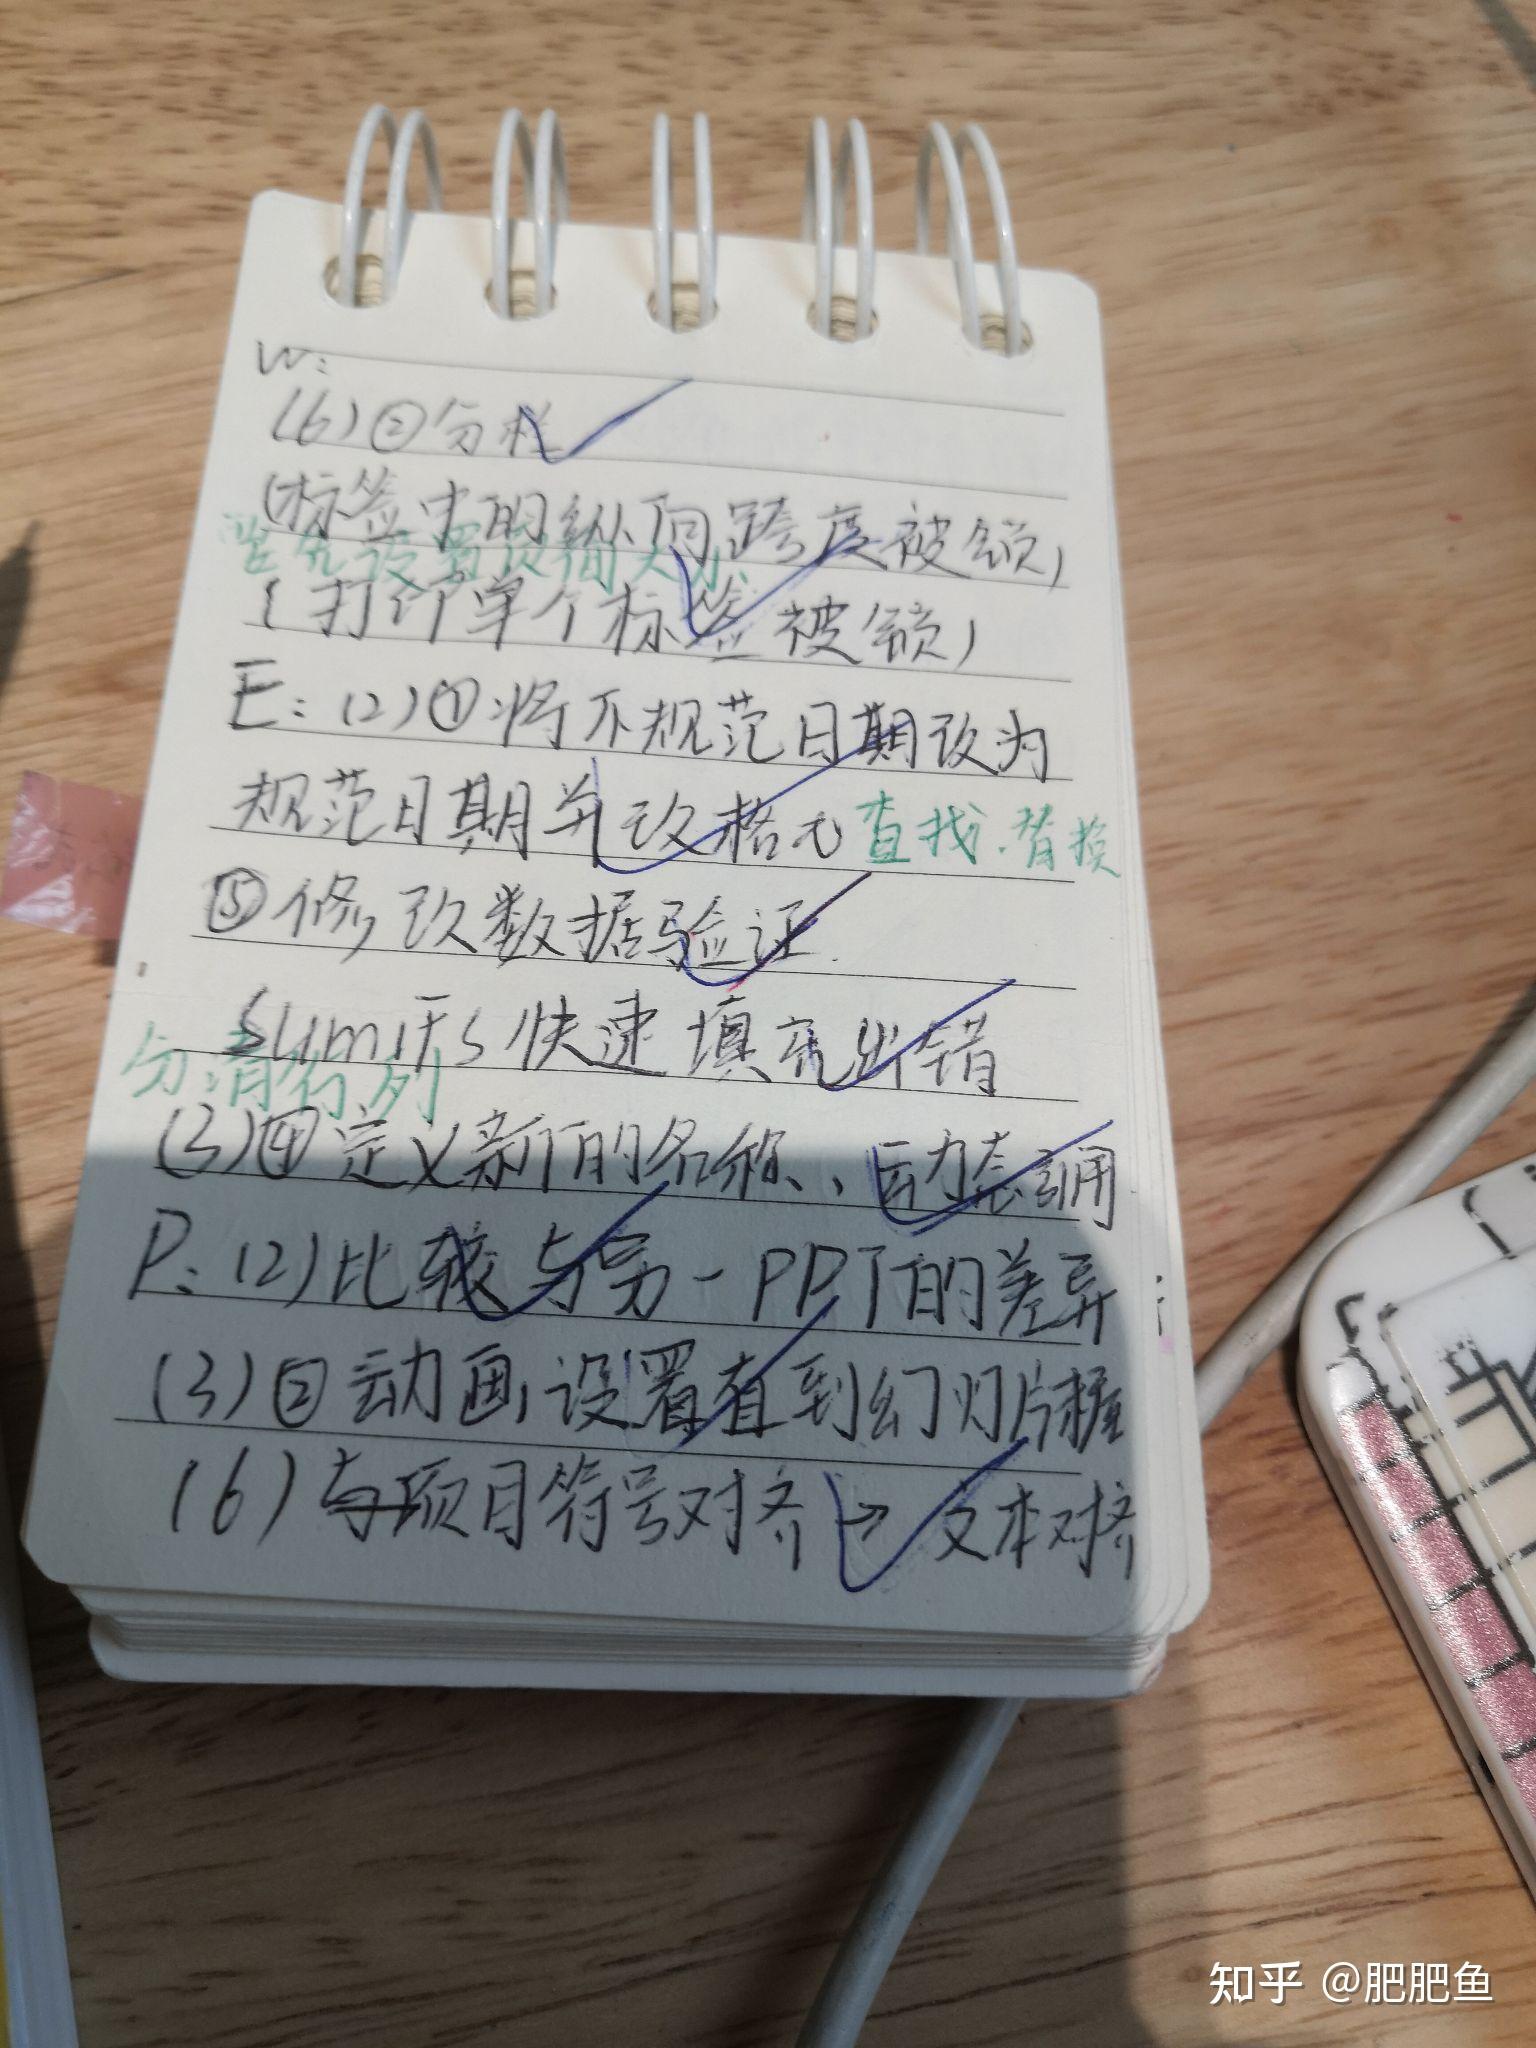 W:
(6)②分栏
(标签中的纵向跨度被锁)
设置页面大小
(打印单个标签被锁)
E:(2)①将不规范日期改为
规范日期并改格式 查找.替换
⑤修改数据验证
sumifs快速填充出错
分清行列
(3)④定义新的名称、动态引用
P:(2)比较与另一PPT的差异
(3)②动画设置直到幻灯片
(6)与项目符号对齐→文本对齐
知乎 @肥肥鱼